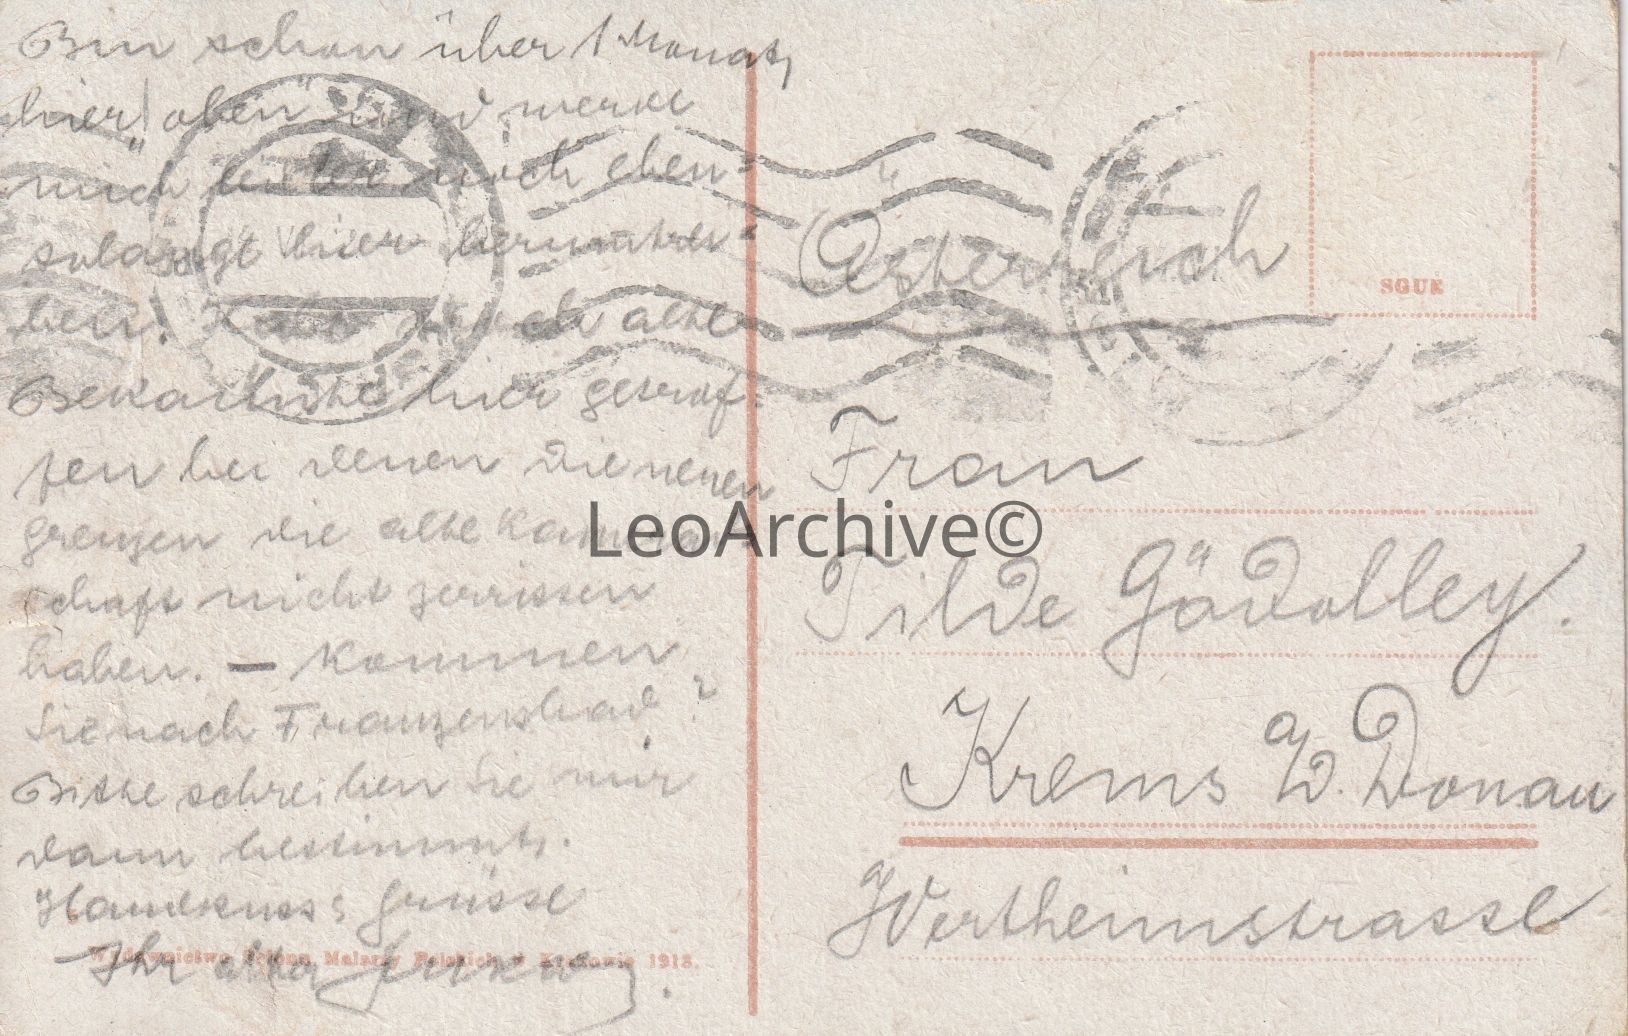 Bin schon über 1 Monat,
hier „oben" und werde
mich hier noch eben-
solang hier herumtrei-
ben. Habe auch alte
Bekannte hier getrof-
fen bei denen die neuen
Grenzen die alte Kamerad-
schaft nicht zerrissen
haben. — Kommen
Sie nach Franzensbad?
Bitte schreiben Sie mir
dann bestimmt.
Handkuss & Grüsse
Ihr alter
Wydawnictwo Salonu Malarzy Polskich w Krakowie 1918.
SGUK
Österreich
Frau
Tilde Gödölley.
Krems a/d. Donau
Wertheimstrasse
LeoArchive©